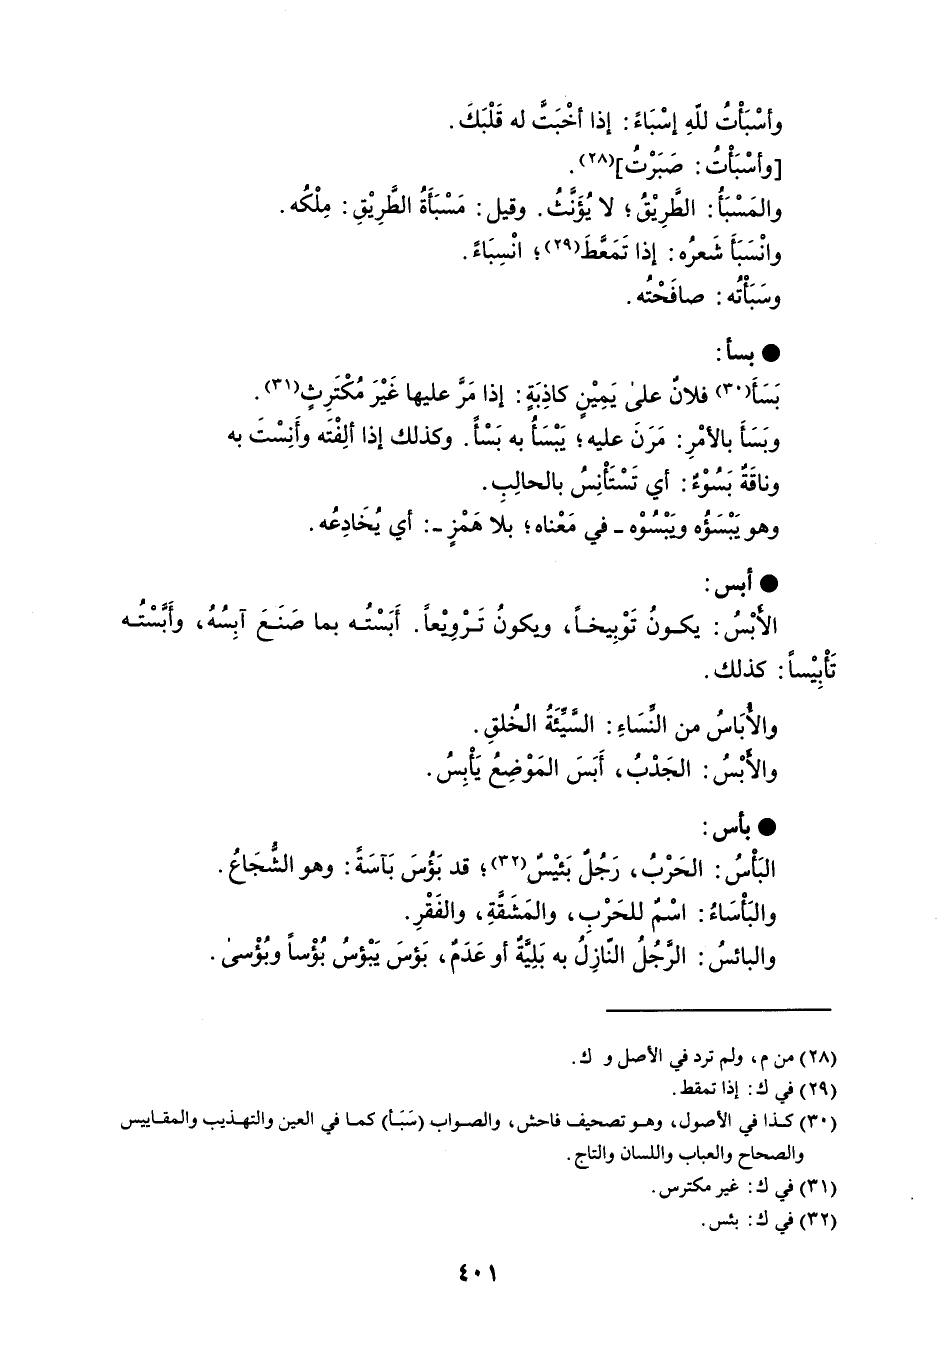 وأسْبَأْتُ للّهِ إسْبَاءً: إذا أخْبَتَّ له قَلْبَكَ.
[وأسْبَأْتُ: صَبَرْتُ](٢٨).
والمَسْبَأُ: الطَّرِيْقُ؛ لا يُؤَنَّثُ. وقيل: مَسْبَأَةُ الطَّرِيْقِ: مِلْكُه.
وانْسَبَأَ شَعرُه: إذا تَمَعَّطَ(٢٩)؛ انْسِبَاءً.
وسَبَأْتُه: صافَحْتُه.
● بسأ:
بَسَأَ(٣٠) فلانٌ علىٰ يَمِيْنٍ كاذِبَةٍ: إذا مَرَّ عليها غَيْرَ مُكْتَرِثٍ(٣١).
وبَسَأَ بالأمْرِ: مَرَنَ عليه؛ يَبْسَأُ به بَسْأً. وكذلك إذا ألِفْتَه وأَنِسْتَ به
وناقَةٌ بَسُوْءٌ: أي تَسْتَأْنِسُ بالحالِبِ.
وهو يَبْسَؤُه ويَبْسُوْه ـ في مَعْناه؛ بلا هَمْزٍ ـ: أي يُخَادِعُه.
● أبس:
الأَبْسُ: يكـونُ تَوْبِيخـاً، ويكونُ تَـرْوِيْعاً. أَبَسْتُـه بما صَنَـعَ آبِسُهُ، وأَبَّسْتُـه
تَأْبِيْساً: كذلك.
والأُبَاسُ من النِّسَاءِ: السَّيِّئَةُ الخُلقِ.
والأَبْسُ: الجَدْبُ، أَبَسَ المَوْضِعُ يَأْبِسُ.
● بأس:
البَأْسُ: الحَرْبُ، رَجُلٌ بَئِيْسٌ(٣٢)؛ قد بَؤُسَ بَآسَةً: وهو الشُّجَاعُ.
والبَأْسَاءُ: اسْمٌ للحَرْبِ، والمَشَقَّةِ، والفَقْرِ.
والبائسُ: الرَّجُلُ النّازِلُ به بَلِيَّةٌ أو عَدَمٌ، بَؤسَ يَبْؤسُ بُؤْساً وبُؤْسىٰ.
(٢٨) من م، ولم ترد في الأصل و ك.
(٢٩) في ك: إذا تمقط.
(٣٠) كـذا في الأصول، وهـو تصحيف فاحش، والصـواب (سَبَـأ) كمـا في العين والتهـذيب والمقـاييس
والصحاح والعباب واللسان والتاج.
(٣١) في ك: غير مكترس.
(٣٢) في ك: بئس.
٤٠١